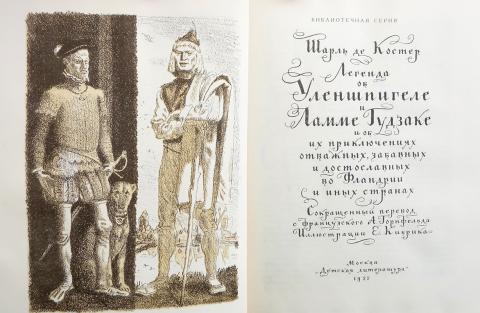 БИБЛИОТЕЧНАЯ СЕРИЯ
Шарль де Костер
Легенда
об
Уленшпигеле
и
Ламме Гудзаке
и об
их приключениях
отважных, забавных
и достославных
во Фландрии
и иных странах
Сокращенный перевод
с французского А. Горнфельда
Иллюстрации Е. Кибрика
Москва
„Детская литература"